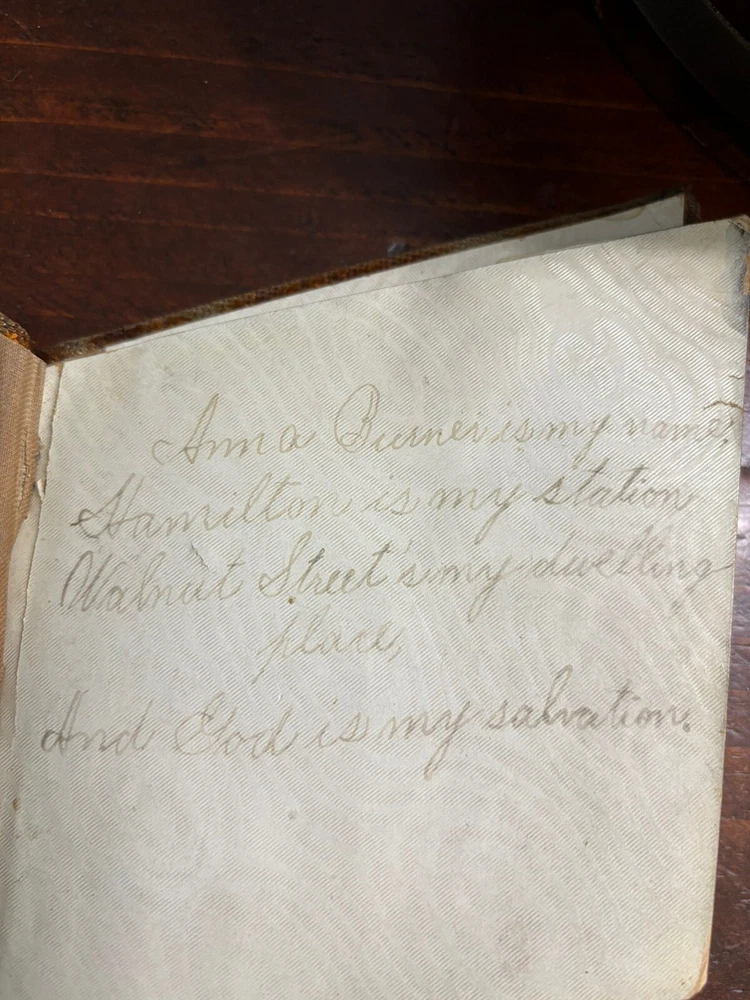 Anna Burner is my name.
Hamilton is my station
Walnut Street is my dwelling
place,
And God is my salvation.